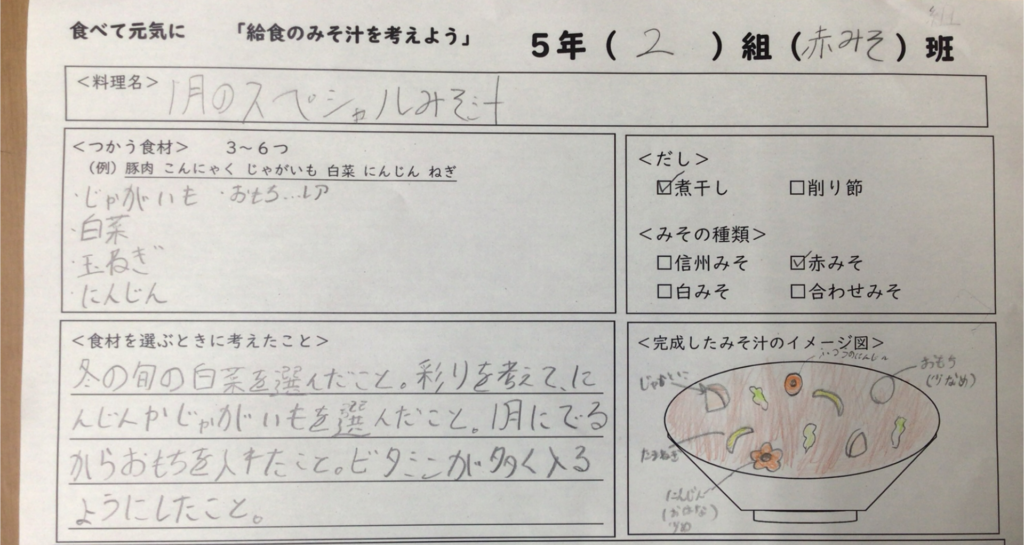 食べて元気に 「給食のみそ汁を考えよう」 5年(2)組(赤みそ)班
<料理名> 1月のスペシャルみそ汁
<つかう食材> 3～6つ
(例)豚肉 こんにゃく じゃがいも 白菜 にんじん ねぎ
・じゃがいも ・おもち…レア
・白菜
・玉ねぎ
・にんじん
<だし>
☑煮干し □削り節
<みその種類>
□信州みそ ☑赤みそ
□白みそ □合わせみそ
<食材を選ぶときに考えたこと>
冬の旬の白菜を選んだこと。彩りを考えて、に
んじんかじゃがいもを選んだこと。1月にでる
からおもちを入れたこと。ビタミンが多く入る
ようにしたこと。
<完成したみそ汁のイメージ図>
ふつうのにんじん
おもち
じゃがいも
たまねぎ
にんじん